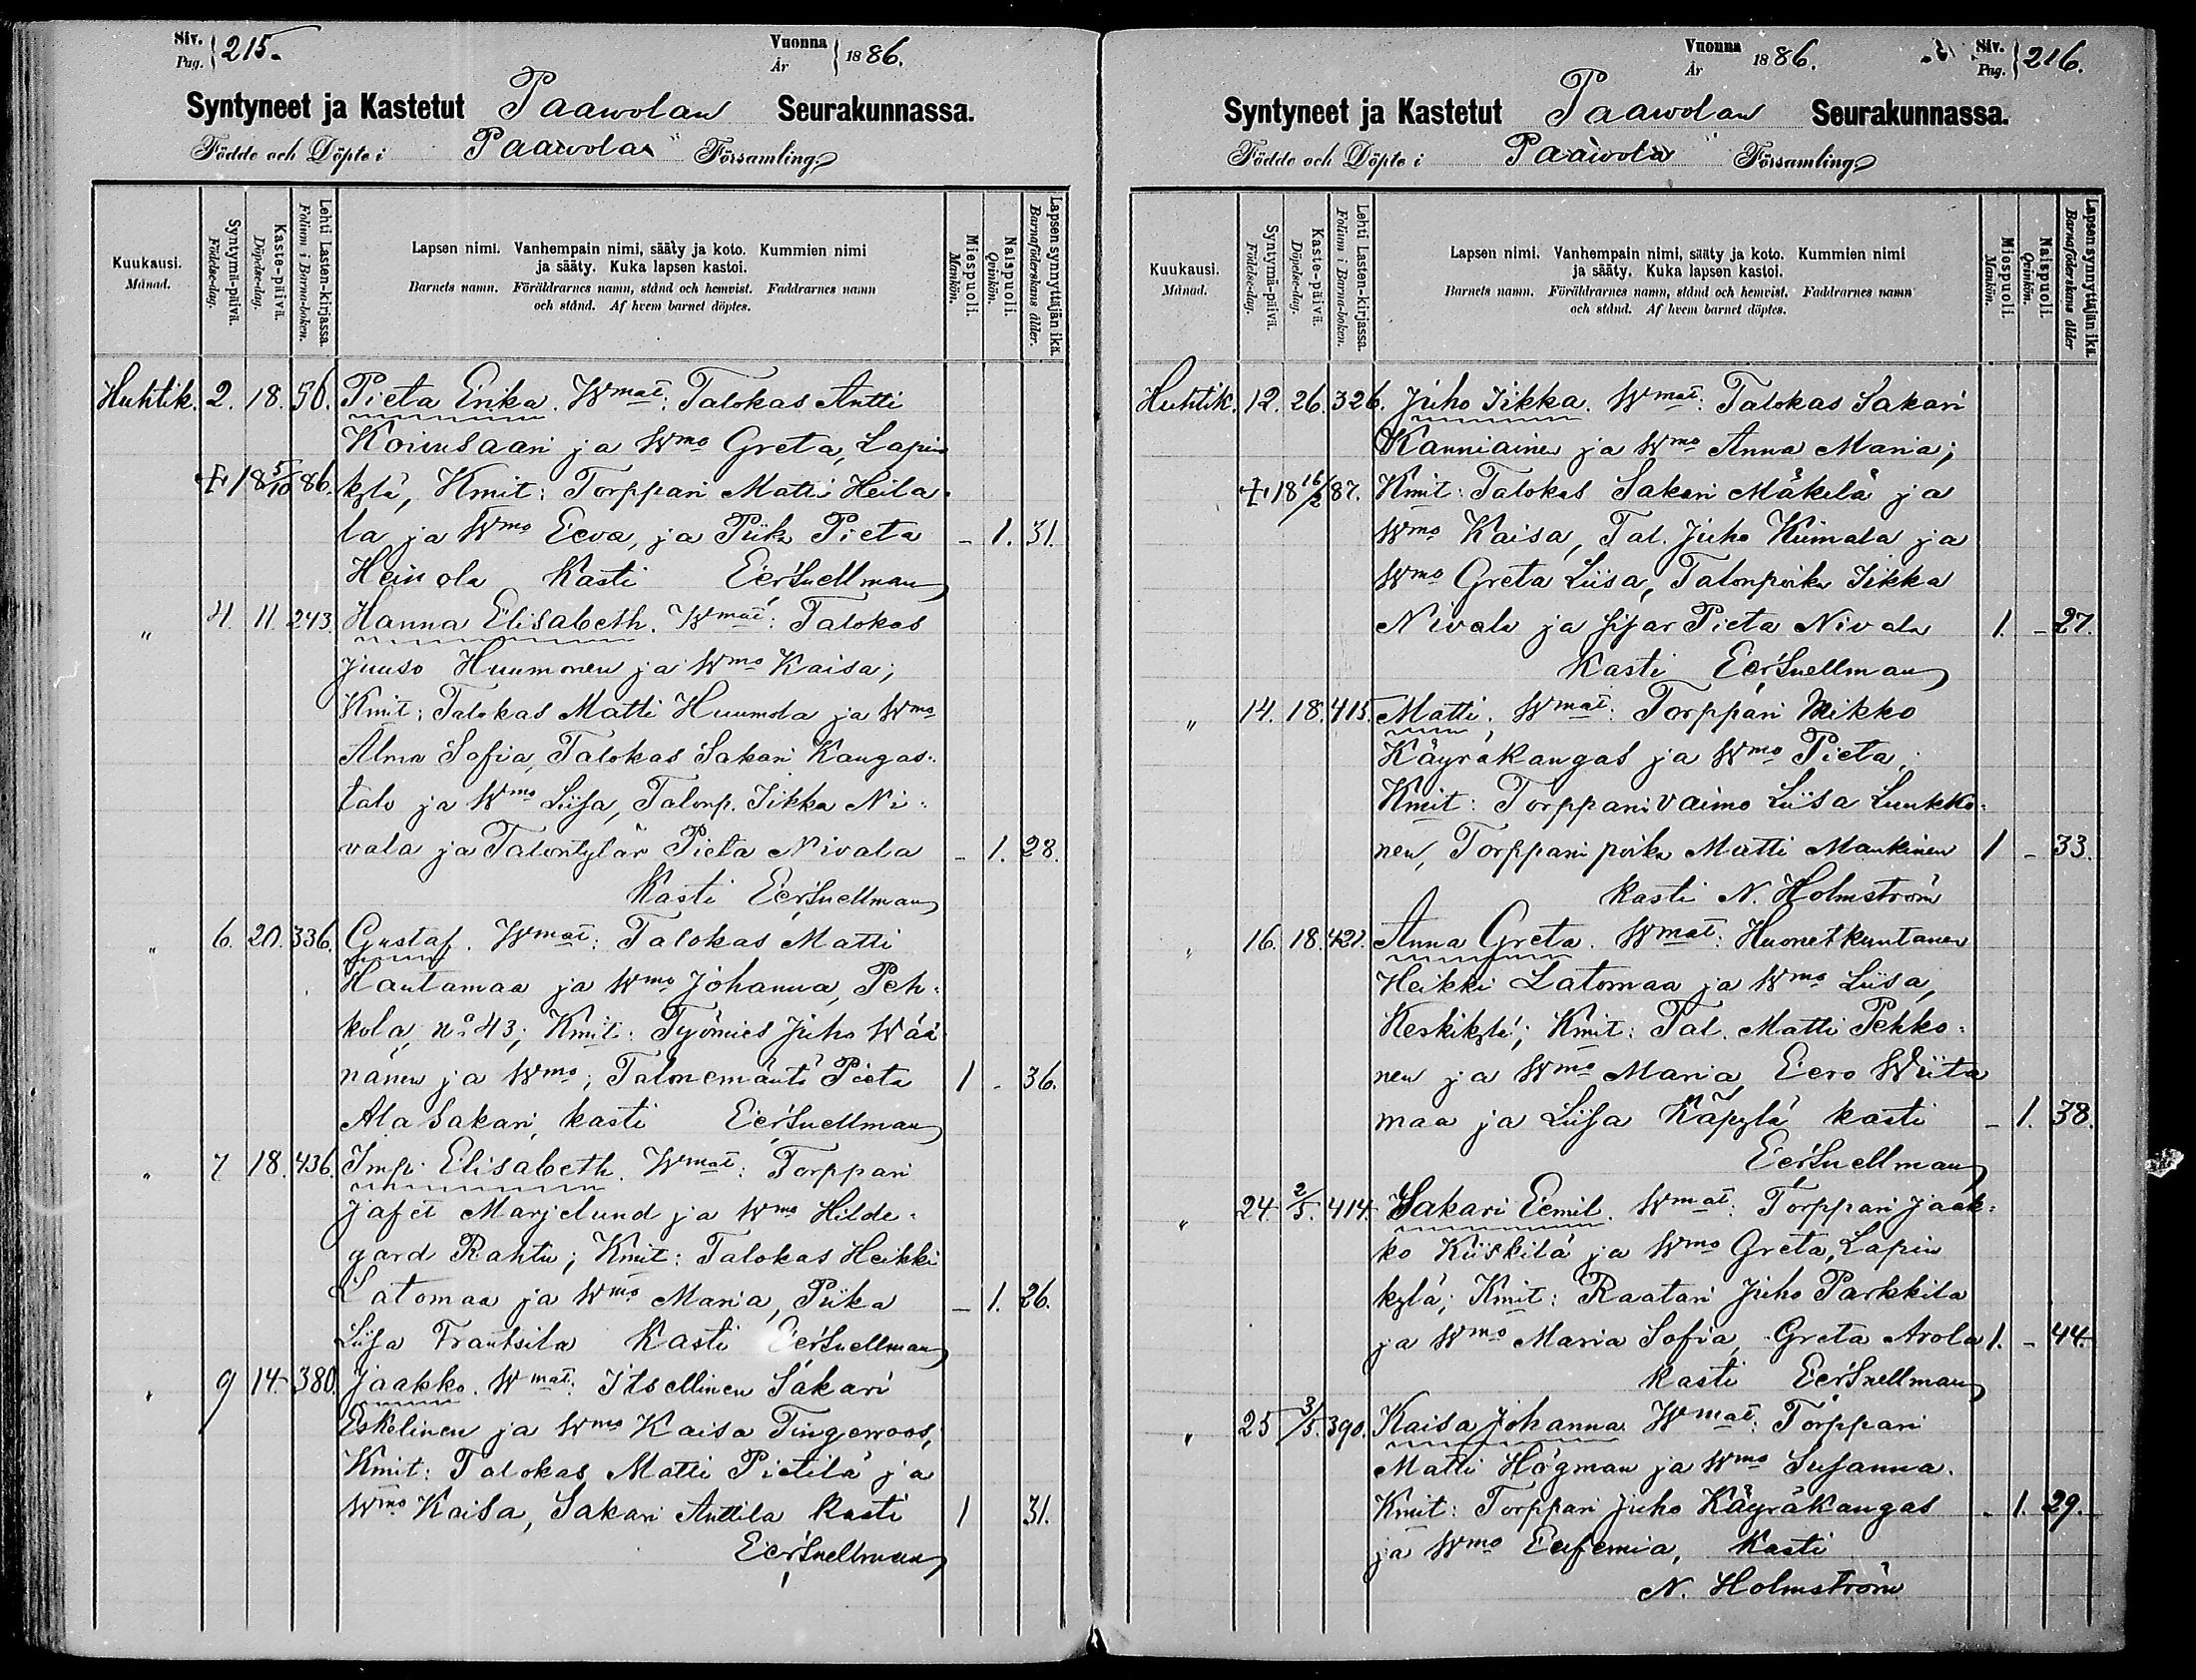 Siv. Pag. 215.
Vuonna År 1886.
Syntyneet ja Kastetut Paawolan Seurakunnassa.
Födde och Döpte i Paawola Församling
Kuukausi. Månad.
Syntymä-päivä. Födelse-dag.
Kaste-päivä. Döpelse-dag.
Lehti Lasten-kirjassa. Folium i Barna-boken.
Lapsen nimi. Vanhempain nimi, sääty ja koto. Kummien nimi
ja sääty. Kuka lapsen kastoi.
Barnets namn. Föräldrarnes namn, stånd och hemvist. Faddrarnes namn
och stånd. Af hvem barnet döptes.
Miespuoli. Mankön.
Naispuoli. Qvinkön.
Lapsen synnyttäjän ikä. Barnaföderskans ålder.
Huhtik. 2. 18. 56. Pieta Erika. Wmat: Talokas Antti
Koivusaari ja Wmo Greta, Lapin
✝ 18 5/10 86. kylä, Kmit: Torppari Matti Heila
la ja Wmo Eeva, ja Piika Pieta - 1. 31.
Heinola Kasti EerSnellman
" 4. 11. 243. Hanna Elisabeth. Wmat: Talokas
Juuso Huumonen ja Wmo Kaisa;
Kmit: Talokas Matti Huumola ja Wmo
Alma Sofia, Talokas Sakari Kangas-
talo ja Wmo Liisa, Talonp. Iikka Ni-
vala ja Talontytär Pieta Nivala - 1. 28.
Kasti EerSnellman
" 6. 20. 336. Gustaf. Wmat: Talokas Matti
Hautamaa ja Wmo Johanna, Peh-
kola, no 43; Kmit: Työmies Juho Wää
nänen ja Wmo; Talonemäntä Pieta 1 - 36.
Ala Sakari, kasti EerSnellman
" 7 18. 436. Impi Elisabeth. Wmat: Torppari
Jafet Marjelund ja Wmo Hilde-
gard Rahtu; Kmit: Talokas Heikki
Latomaa ja Wmo Maria, Piika - 1. 26.
Liisa Frantsila Kasti EerSnellman
" 9 14. 380. Jaakko. Wmat: Itsellinen Sakari
Eskelinen ja Wmo Kaisa Tingeroos,
Kmit: Talokas Matti Pietilä ja
Wmo Kaisa, Sakari Anttila Kasti 1 31.
EerSnellman
Vuonna År 1886.
Siv. Pag. 216.
Syntyneet ja Kastetut Paawolan Seurakunnassa.
Födde och Döpte i Paawola Församling
Kuukausi. Månad.
Syntymä-päivä. Födelse-dag.
Kaste-päivä. Döpelse-dag.
Lehti Lasten-kirjassa. Folium i Barna-boken.
Lapsen nimi. Vanhempain nimi, sääty ja koto. Kummien nimi
ja sääty. Kuka lapsen kastoi.
Barnets namn. Föräldrarnes namn, stånd och hemvist. Faddrarnes namn
och stånd. Af hvem barnet döptes.
Miespuoli. Mankön.
Naispuoli. Qvinkön.
Lapsen synnyttäjän ikä. Barnaföderskans ålder
Huhtik. 12. 26. 326. Juho Iikka. Wmat: Talokas Sakari
Kanniainen ja Wmo Anna Maria;
✝ 18 16/2 87. Kmit: Talokas Sakari Mäkelä ja
Wmo Kaisa, Tal. Juho Kiimala ja
Wmo Greta Liisa, Talonpoika Iikka
Nivala ja sisar Pieta Nivala 1. - 27.
Kasti EerSnellman
" 14. 18. 415. Matti. Wmat: Torppari Mikko
Käyräkangas ja Wmo Pieta.
Kmit: Torpparinvaimo Liisa Luukko-
nen, Torpparin poika Matti Mankinen 1 - 33.
kasti N. Holmström
" 16. 18. 421. Anna Greta. Wmat: Huonetkuntanen
Heikki Latomaa ja Wmo Liisa,
Keskikylä; Kmit: Tal. Matti Pekko-
nen ja Wmo Maria, Eero Wiita
maa ja Liisa Käpylä kasti - 1. 38.
EerSnellman
" 24. 2/5. 414. Sakari Eemil. Wmat: Torppari Jaak-
ko Kiiskilä ja Wmo Greta, Lapin
kylä; Kmit: Raatari Juho Parkkila
ja Wmo Maria Sofia, Greta Arola 1. - 44.
Kasti EerSnellman
" 25 3/5. 390. Kaisa Johanna. Wmat: Torppari
Matti Högman ja Wmo Susanna.
Kmit: Torppari Juho Käyräkangas - 1. 29.
ja Wmo Eufemia, Kasti
N. Holmström